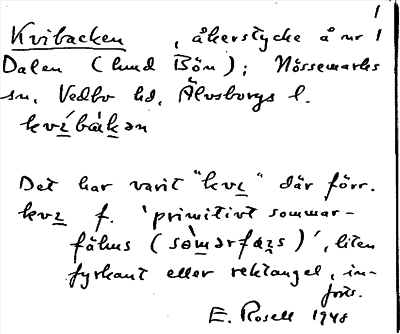 1
Kvibacken, åkerstycke å nr 1
Dalen (hund Bön); Nössemarks
sn, Vedbo hd, Älvsborgs l.
kví̲bàk̲ən
Det har varit "kvi̲" där förr.
kvi̲ f. 'primitivt sommar-
fähus (sòm̲ərfǝi̲s)', liten
fyrkant eller rektangel, in-
E. Rosell 1948